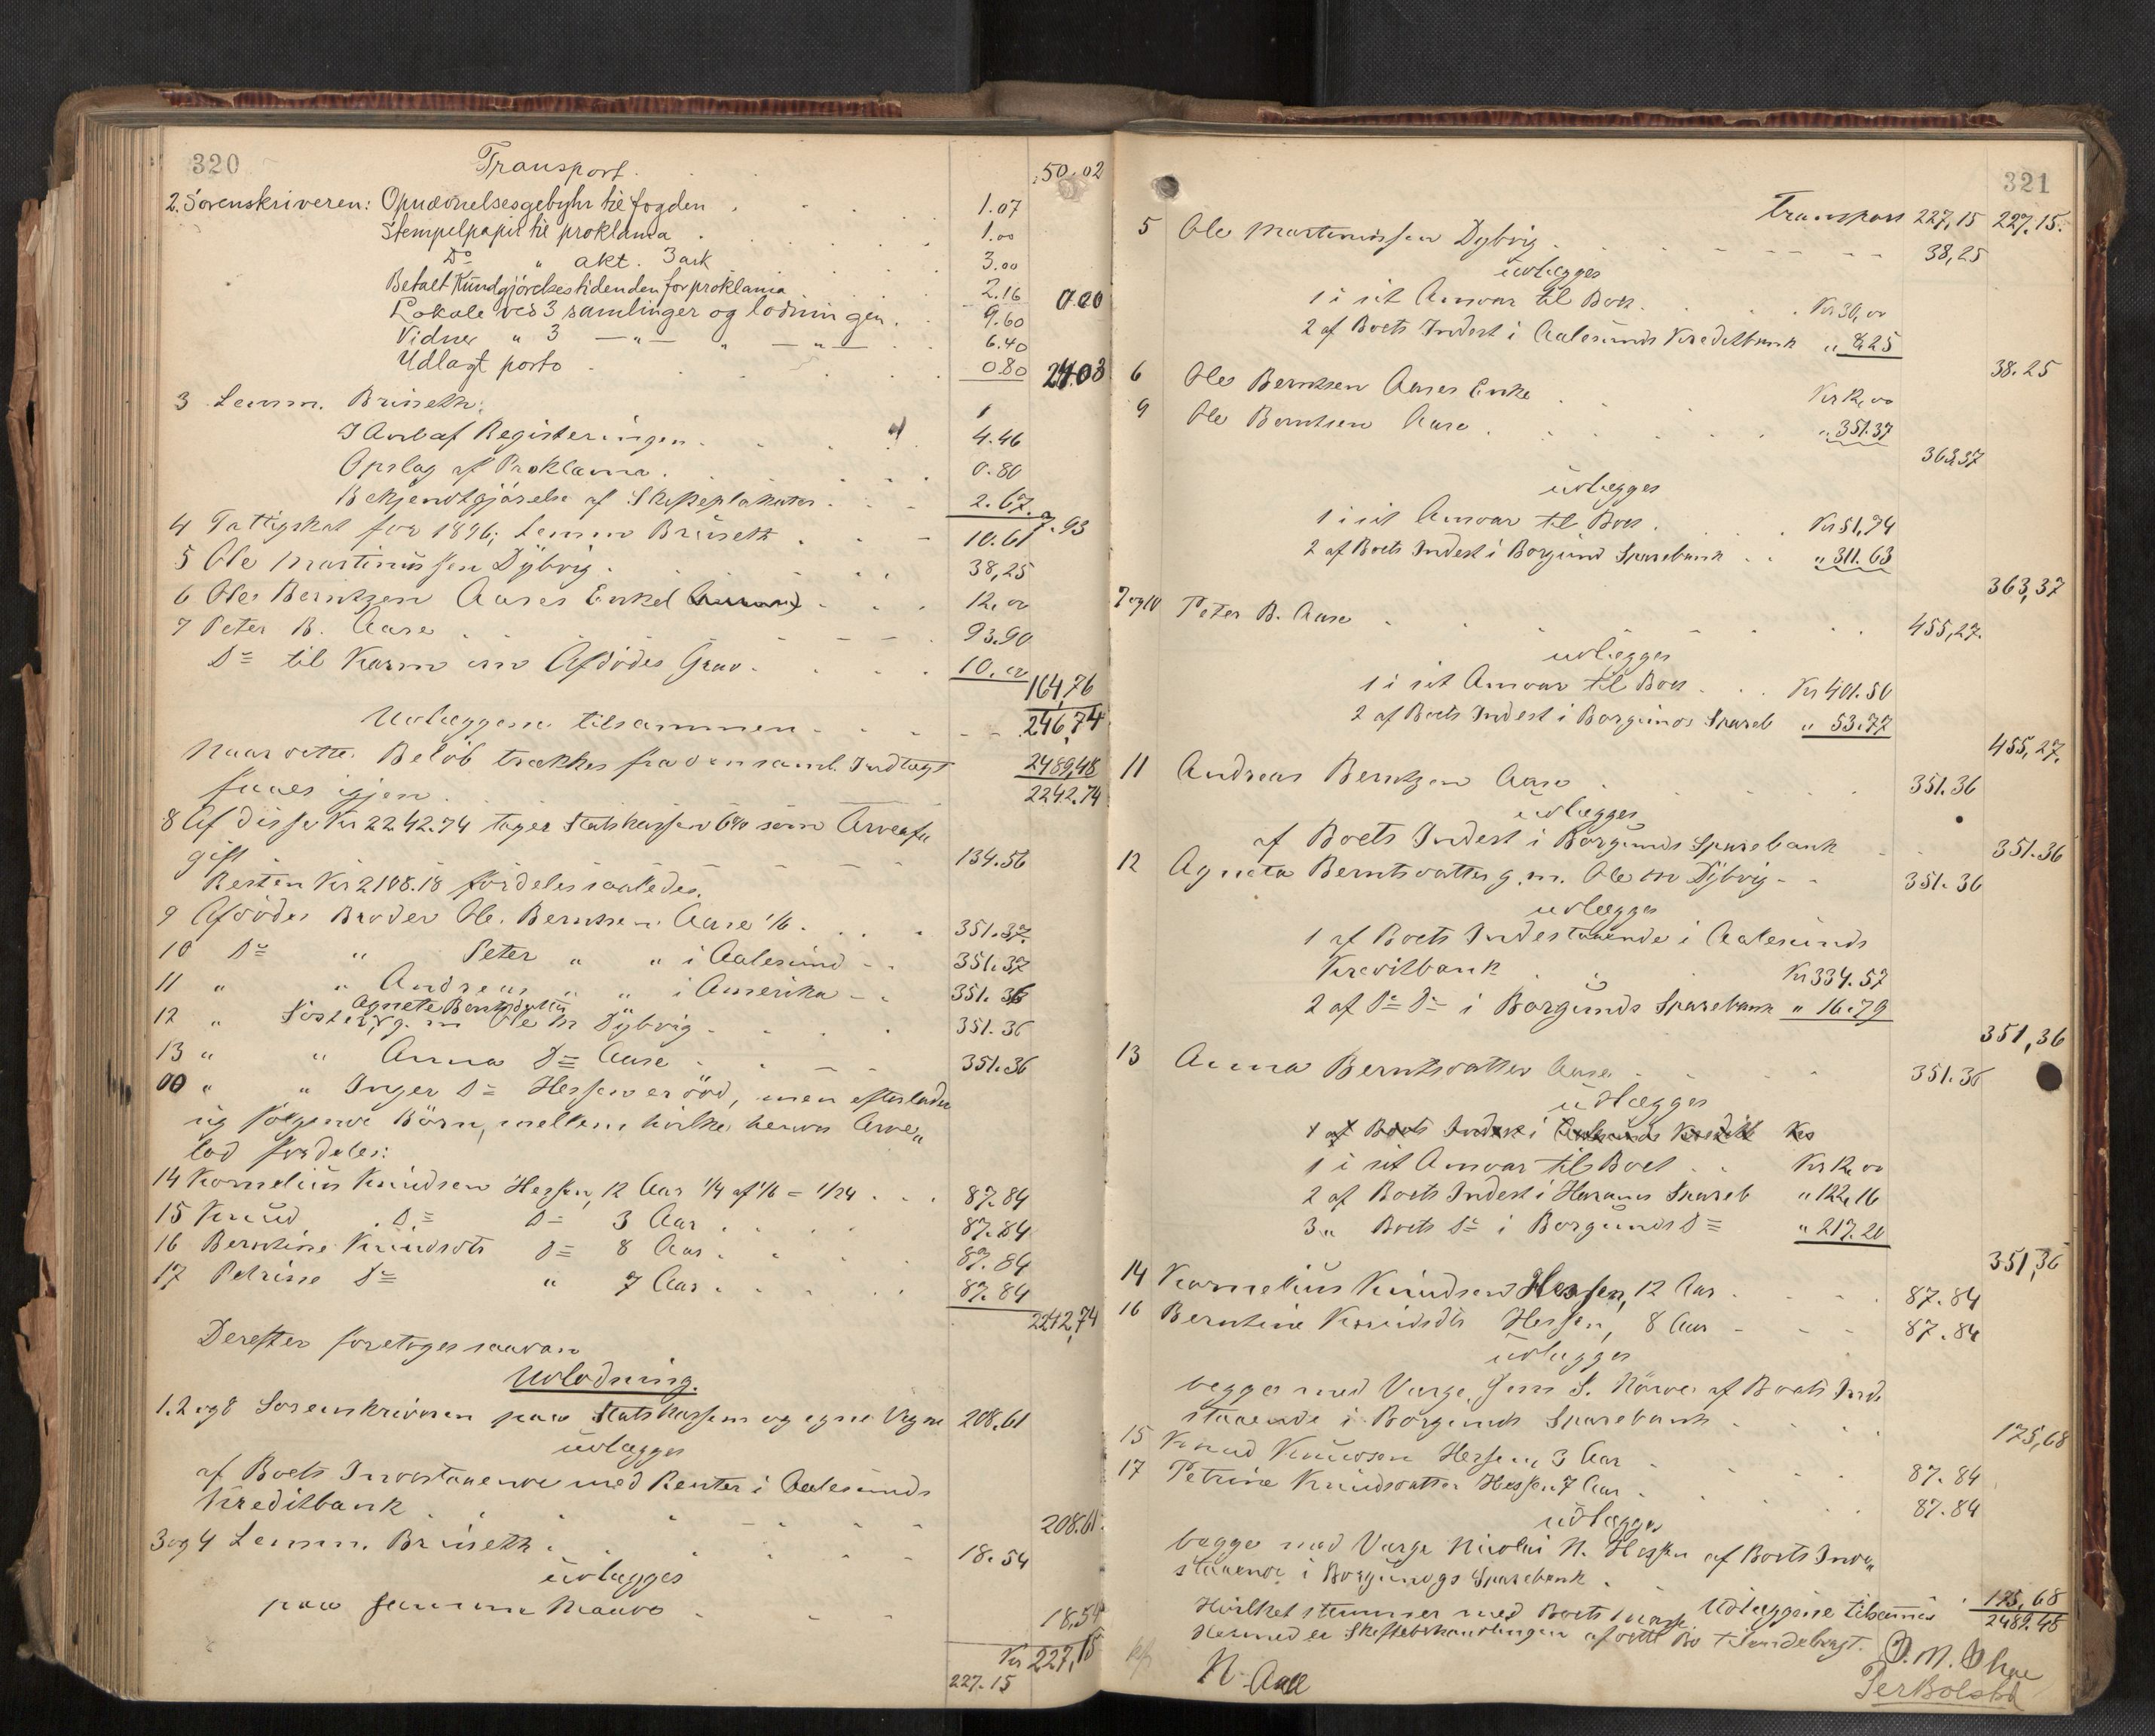 320
Transport. 50.02
2. Sorenskriveren: Opnævnelsesgebyhr til fogden 1.07
Stempelpapir til proklama 1.00
Do " akt. 3 ark 3.00
Betalt Kundgjörelsestidenden for proklama 2.16
Lokale ved 3 samlinger og lodningen. 9.60
Vidner " 3 —"— " —"— 6.40
Udlagt porto 0.80 24.03
3 Lensm. Brüseth:
I Anl af Registeringen. 4.46
Opslag af Proklama. 0.80
Bekjendtgjörelse af Skifteplakater 2.67. 7.93
4 Fattigskat for 1896, Lensm Brüseth 10.61
5 Ole Martinussen Dybvig. 38,25
6 Ole Berntzen Aases Enke 12,00
7 Peter B. Aase 93.90
Do til Karm om Afdödes Grav. 10.00 164,76
Udlæggene tilsammen 246,74
Naar dette Belöb trækkes fra den saml. Indtægt 2489,48
faaes igjen 2242.74
8 Af disse Kr 2242.74 tager Statskassen 6% som Arveaf„
gift 134.56
Resten Kr 2108.18 fordeles saaledes.
9 Afdödes Broder Ole Berntsen Aase 1/6. 351.37.
10 Do " Peter " " i Aalesund 351.37
11 " " Andreas " " i Amerika 351.36
Agnete Berntsdatter
12 " Söster, g. m Ole M Dybvig 351.36
13 " " Anna Do Aase 351.36
00 " " Inger Do Hessen er död, men efterlader
sig fölgende Börn, mellem hvilke hendes Arve„
lod fordeles:
14 Kornelius Knudsen Hessen, 12 Aar 1/4 af 1/6 = 1/24 87.84
15 Knud Do Do 3 Aar 87.84
16 Berntine Knudsdtr Do 8 Aar 87.84
17 Petrine Do " 7 Aar 87.84
2242,74
Derefter foretoges saadan
Udlodning.
1.2 og 8 Sorenskriveren paa Statskassens og egne Vegne 208.61
udlægges
af Boets Indestaaende med Renter i Aalesunds
Kreditbank 208.61.
3 og 4 Lensm. Brüseth. 18.54
udlægges
paa samme Maade 18,54
Kr 227,15
227.15
321
Transport 227,15 227.15.
5 Ole Martinussen Dybvig 38,25
udlægges
1 i sit Ansvar til Boet. Kr 30,00
2 af Boets Indest i Aalesunds Kreditbank " 8,25
38.25
6 Ole Berntsen Aases Enke Kr 12,00
9 Ole Berntsen Aase " 351.37
363,37
udlægges
1 i sit Ansvar til Boet. Kr 51,74
2 af Boets Indest i Borgund Sparebank " 311.63
363,37
7 og 10 Peter B. Aase 455,27.
udlægges
1 i sit Ansvar til Boet Kr 401.50
2 af Boets Indest i Borgunds Spareb " 53.77
455,27.
11 Andreas Berntzen Aase 351.36
udlægges
af Boets Indest i Borgunds Sparebank 351.36
12 Agneta Berntsdatter g. m. Ole M Dybvig 351.36
udlægges
1 af Boets Indestaaende i Aalesunds
Kreditbank Kr 334.57
2 af Do Do i Borgunds Sparebank " 16.79
351,36
13 Anna Berntsdatter Aase 351.36
udlægges
1 af Boets Indest i Aalesunds Kreditb Kr
1 i sit Ansvar til Boet Kr 12,00
2 af Boets Indest i Harams Spareb " 122,16
3 " Boets Do i Borgunds Do " 217.20
351,36
14 Kornelius Knudsen Hessen, 12 Aar 87.84
16 Berntine Knudsdtr Hessen, 8 Aar 87.84
udlægges
begge med Værge Jens S. Nörve af Boets Inde
staaende i Borgunds Sparebank 175,68
15 Knud Knudsen Hessen, 3 Aar 87.84
17 Petrine Knudsdatter Hessen 7 Aar 87.84
udlægges
begge med Værge Nicolai N. Hessen af Boets Inde„
staaende i Borgunds Sparebank. 175,68
Udlæggene tilsammen 2489.48
Hvilket stemmer med Boets Masse
Hermed er Skiftebehandlingen af dette Bo tilendebragt.
N. Aall